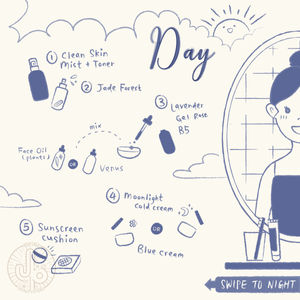 Day
① Clean Skin
Mist + Toner
② Jade Forest
③ Lavender
Gal Rose
B5
mix
Face Oil
(plants)
OR
Venus
④ Moonlight
cold cream
OR
Blue cream
⑤ Sunscreen
cushion
SWIPE TO NIGHT